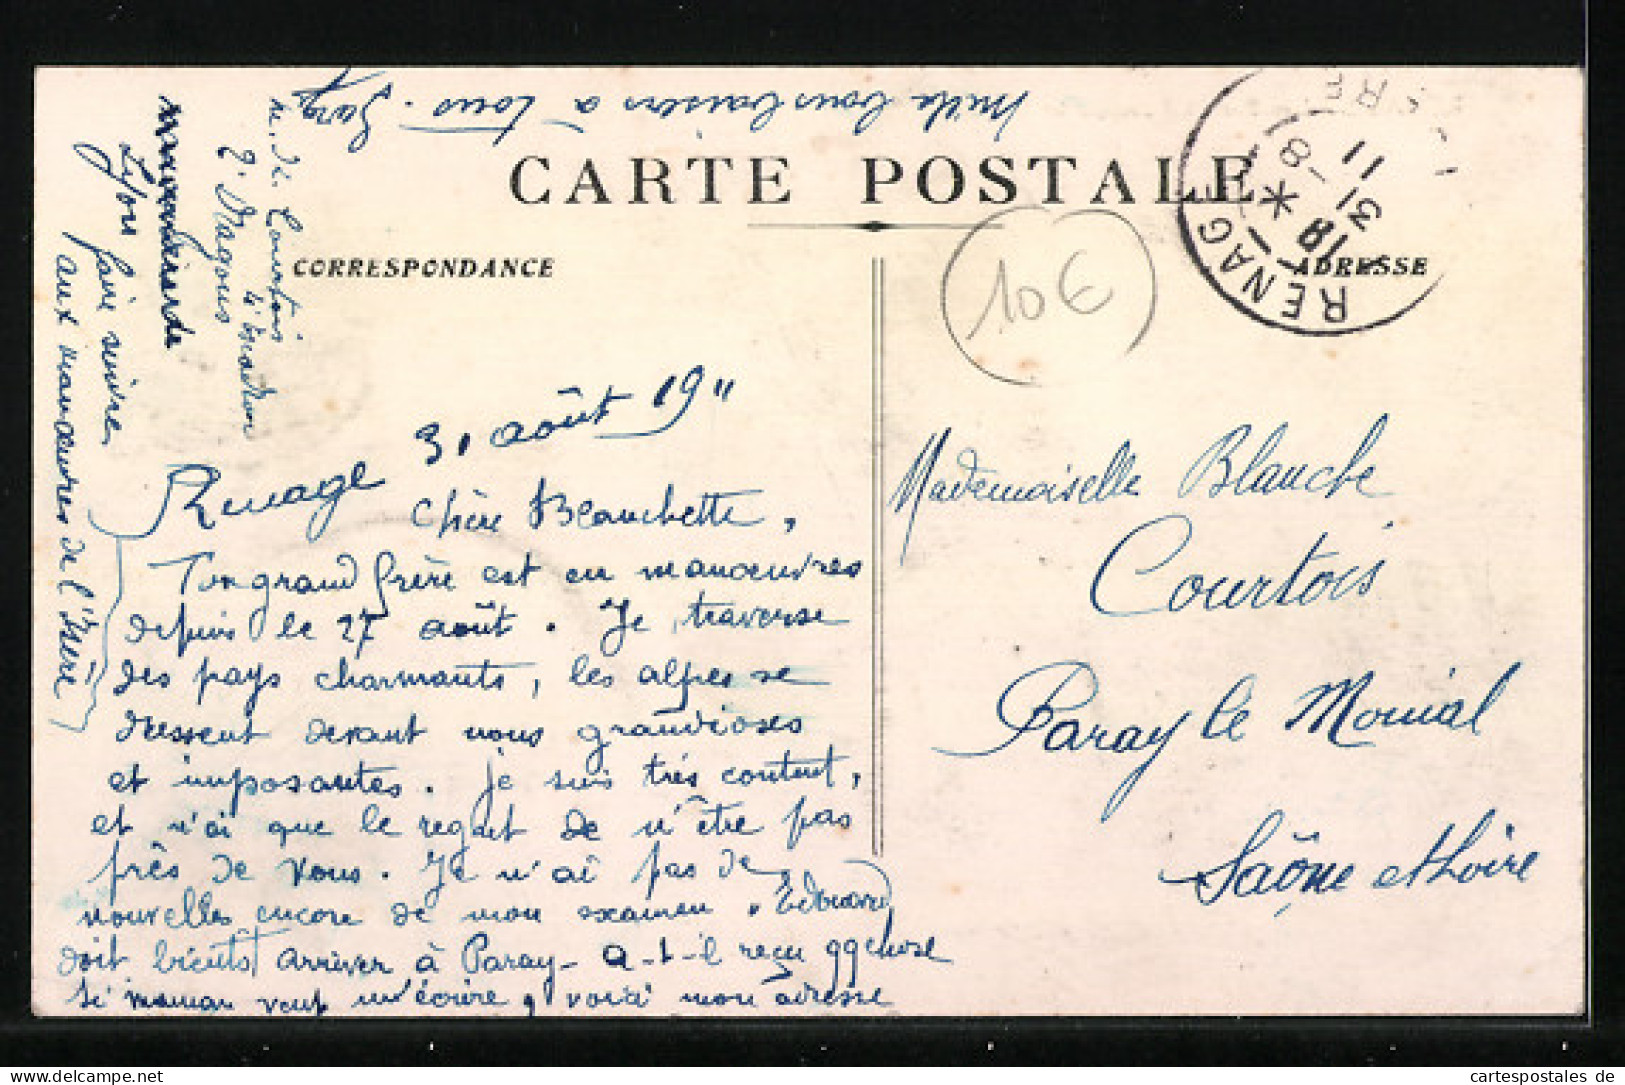 Mille bons baisers à tous.
CARTE POSTALE
CORRESPONDANCE
ADRESSE
RENAGE
18 *
31 - 8
11
10€
M. de Courtois
2e Dragons
4e escadron
Lyon faire suivre
aux manœuvres de l'Isère
Renage 31 août 1911
Chère Blanchette,
Ton grand frère est en manœuvres
depuis le 27 août. Je traverse
des pays charmants, les alpes se
dressent devant nous grandioses
et imposantes. Je suis très content,
et n'ai que le regret de n'être pas
près de vous. Je n'ai pas de
nouvelles encore de mon examen. Edouard
doit bientôt arriver à Paray - a-t-il reçu qqchose
si maman veut m'écrire, voici mon adresse
Mademoiselle Blanche
Courtois
Paray le Monial
Saône et Loire
cartespostales de
https://www.cartespostales.eu/